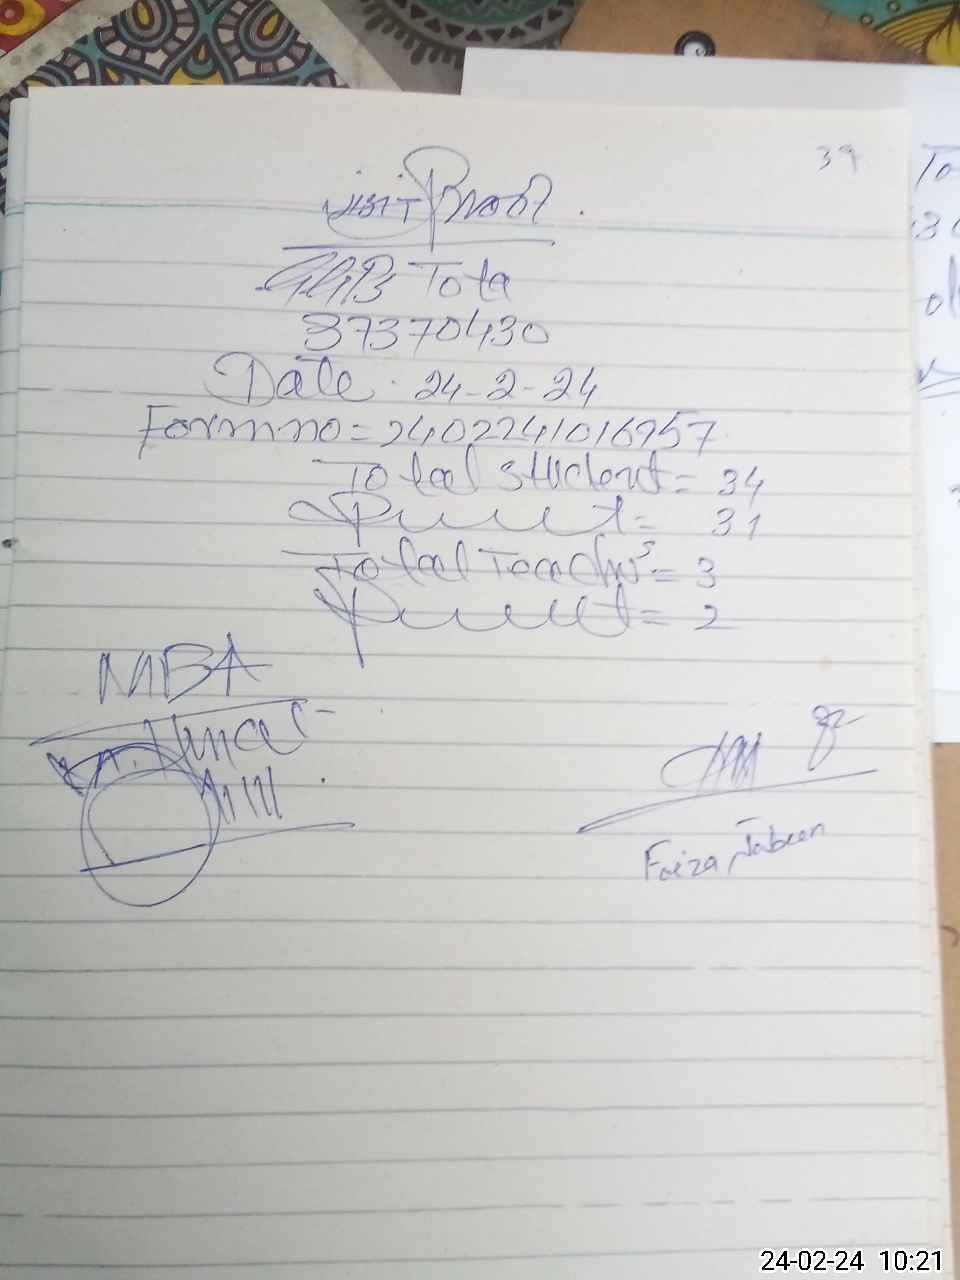 39
Visit Proof
GGPS Tota
37370430
Date 24-2-24
Form no = 2402241016957
Total student = 34
Present = 31
Total Teachers = 3
Present = 2
MBA
Faiza Jabeen
To
24-02-24 10:21